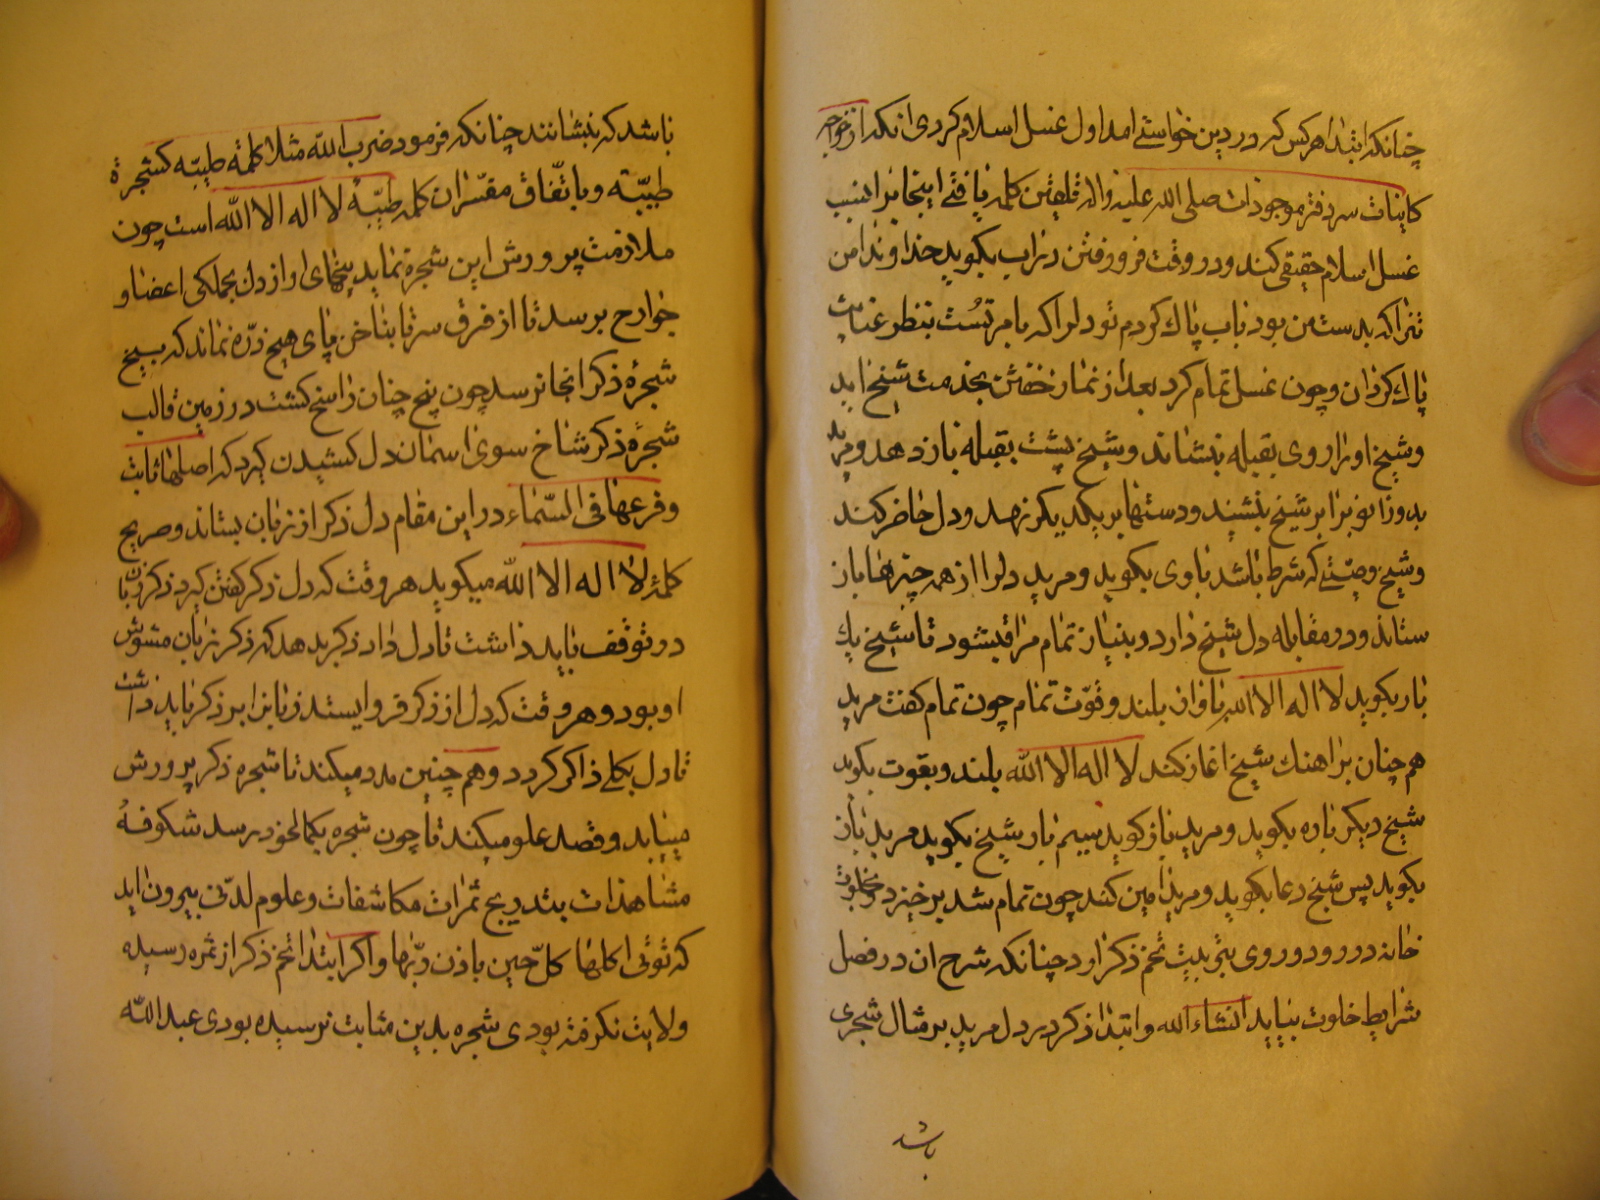 چنانکه ابتدا هرکس که در دین خواستی امد اول غسل اسلام کردی انکه از خواجه
کاینات سر دفتر موجودات صلی الله علیه واله تلقین کلمه یافتی اینجا نیز انسب
غسل اسلام حقیقی کند و در وقت فرو رفتن در اب بکوید خداوندا من
تنرا که بدست من بود باب پاک کردم تو دلرا که بامر تست بنظر عنایت
پاک کردان و چون غسل تمام کرد بعد از نماز خفتن بخدمت شیخ اید
و شیخ او را روی بقبله بنشاند و شیخ پشت بقبله باز دهد و مرید
بدو زانو برابر شیخ بنشیند و دستها بر یکدیکر نهد و دل حاضر کند
و شیخ وصیتی که شرط باشد با وی بکوید و مرید دلرا از همه چیزها باز
ستاند و در مقابله دل شیخ دارد و بنیاز تمام مراقب شود تا شیخ یک
بار بکوید لا اله الا الله باواز بلند و قوت تمام چون تمام کفت مرید
هم چنان بر اهنک شیخ اغاز کند لا اله الا الله بلند و بقوت بکوید
شیخ دیکر باره بکوید و مرید باز کوید سیم بار شیخ بکوید مرید باز
بکوید پس شیخ دعا بکوید و مرید امین کند چون تمام شد برخیزد و بخلوت
خانه در رود و روی بتربیت تخم ذکر اورد چنانکه شرح ان در فصل
شرایط خلوت بیاید انشاء الله و ابتدا ذکر در دل مرید بر مثال شجری
باشد
باشد که بنشانند چنانکه فرمود ضرب الله مثلا کلمة طیبه کشجرة
طیبّة و باتّفاق مفسّران کلمه طیّبه لا اله الا الله است چون
ملازمت پرورش این شجره نماید بیخهای او از دل بجملکی اعضا و
جوارح برسد تا از فرق سر تا بناخن پای هیچ ذرّه نماند که بیخ
شجرهٔ ذکر انجا نرسد چون بیخ چنان راسخ کشت در زمین قالب
شجرهٔ ذکر شاخ سوی اسمان دل کشیدن کیرد که اصلها ثابت
و فرعها فی السّماء در این مقام دل ذکر از زبان بستاند و صریح
کلمهٔ لا اله الا الله میکوید هر وقت که دل ذکر کفتن کیرد ذکر زبان را
در توقف باید داشت تا دل داد ذکر بدهد که ذکر زبان مشوش
او بود و هر وقت که دل از ذکر فرو ایستد زبانرا بر ذکر باید داشت
تا دل بکلی ذاکر کردد و هم چنین مدد میکند تا شجره ذکر پرورش
مییابد و قصد علو میکند تا چون شجره بکمال خود رسد شکوفهٔ
مشاهدات بتدریج ثمرات مکاشفات و علوم لدنّی بیرون اید
که توتی اکلها کلّ حین باذن ربّها و اکر ابتدا تخم ذکر از ثمره رسیده
ولایت نکرفته بودی شجره بدین مثابت نرسیده بودی عبد الله